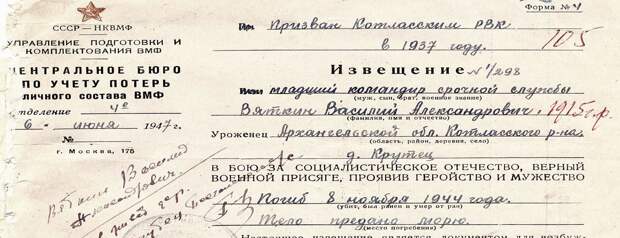 СССР—НКВМФ
УПРАВЛЕНИЕ ПОДГОТОВКИ и
КОМПЛЕКТОВАНИЯ ВМФ
ЦЕНТРАЛЬНОЕ БЮРО
ПО УЧЕТУ ПОТЕРЬ
личного состава ВМФ
отделение 4е
6 июня 1947 г.
№
г. Москва, 175
Вяткин Василий
Александрович
Форма № 4
Призван Котласским РВК
в 1937 году.
105
Извещение № 1/298
младший командир срочной службы
(муж, сын, брат, военное звание)
Вяткин Василий Александрович, 1915 г.р.
(фамилия, имя и отчество)
Уроженец Архангельской обл. Котласского р-на.
(область, район, деревня, село)
с/с д. Крутец
В БОЮ ЗА СОЦИАЛИСТИЧЕСКОЕ ОТЕЧЕСТВО, ВЕРНЫЙ
ВОЕННОЙ ПРИСЯГЕ, ПРОЯВИВ ГЕРОЙСТВО И МУЖЕСТВО
Погиб 8 ноября 1944 года.
(убит, был ранен и умер от ран)
Тело предано морю.
(место погребения)
Настоящее извещение является документом для возбуж-